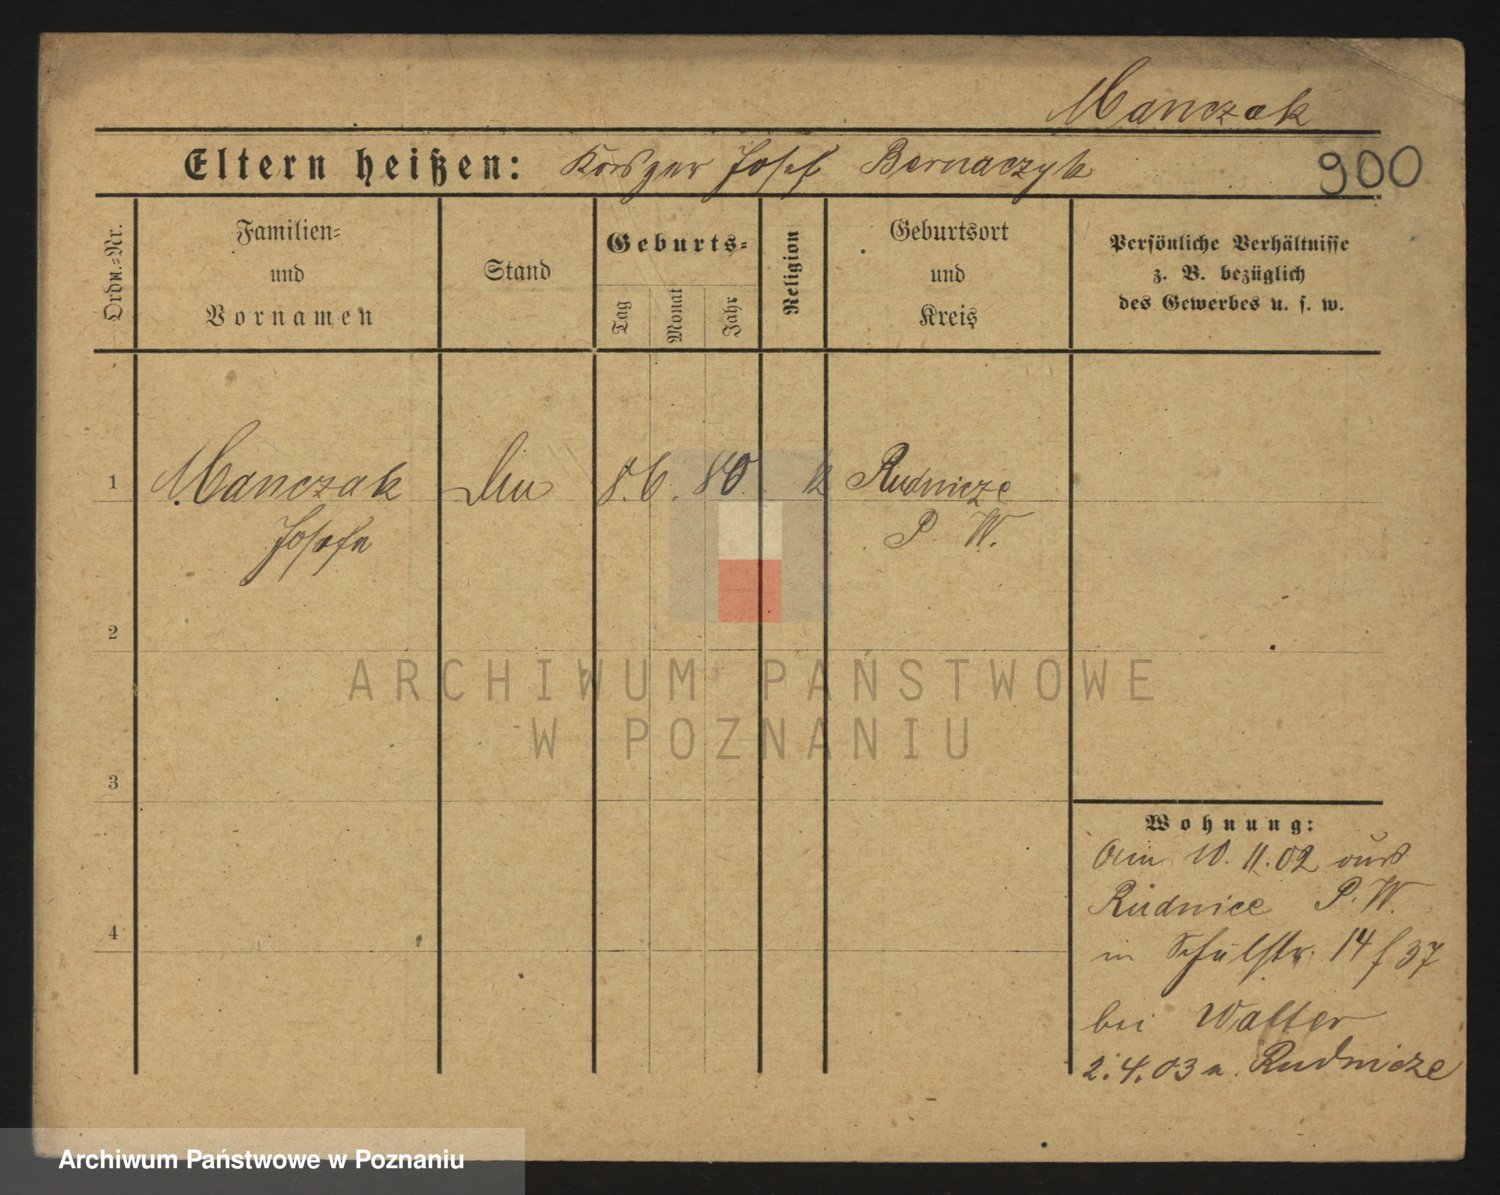 Manczak
Eltern heißen: Josef Bernaczyk
900
Ordn.-Nr.
Familien-
und
Vornamen
Stand
Geburts-
Tag
Monat
Jahr
Religion
Geburtsort
und
Kreis
Persönliche Verhältnisse
z. B. bezüglich
des Gewerbes u. s. w.
1 Manczak 8. 6. 80. k Rudnicze
Josefa P. W.
2
3
4
Wohnung:
Am 10. 11. 02 aus
Rudnice P. W.
in Schulstr. 14 f 37
bei Walter
2.4.03 n. Rudnicze
ARCHIWUM PAŃSTWOWE
W POZNANIU
Archiwum Państwowe w Poznaniu